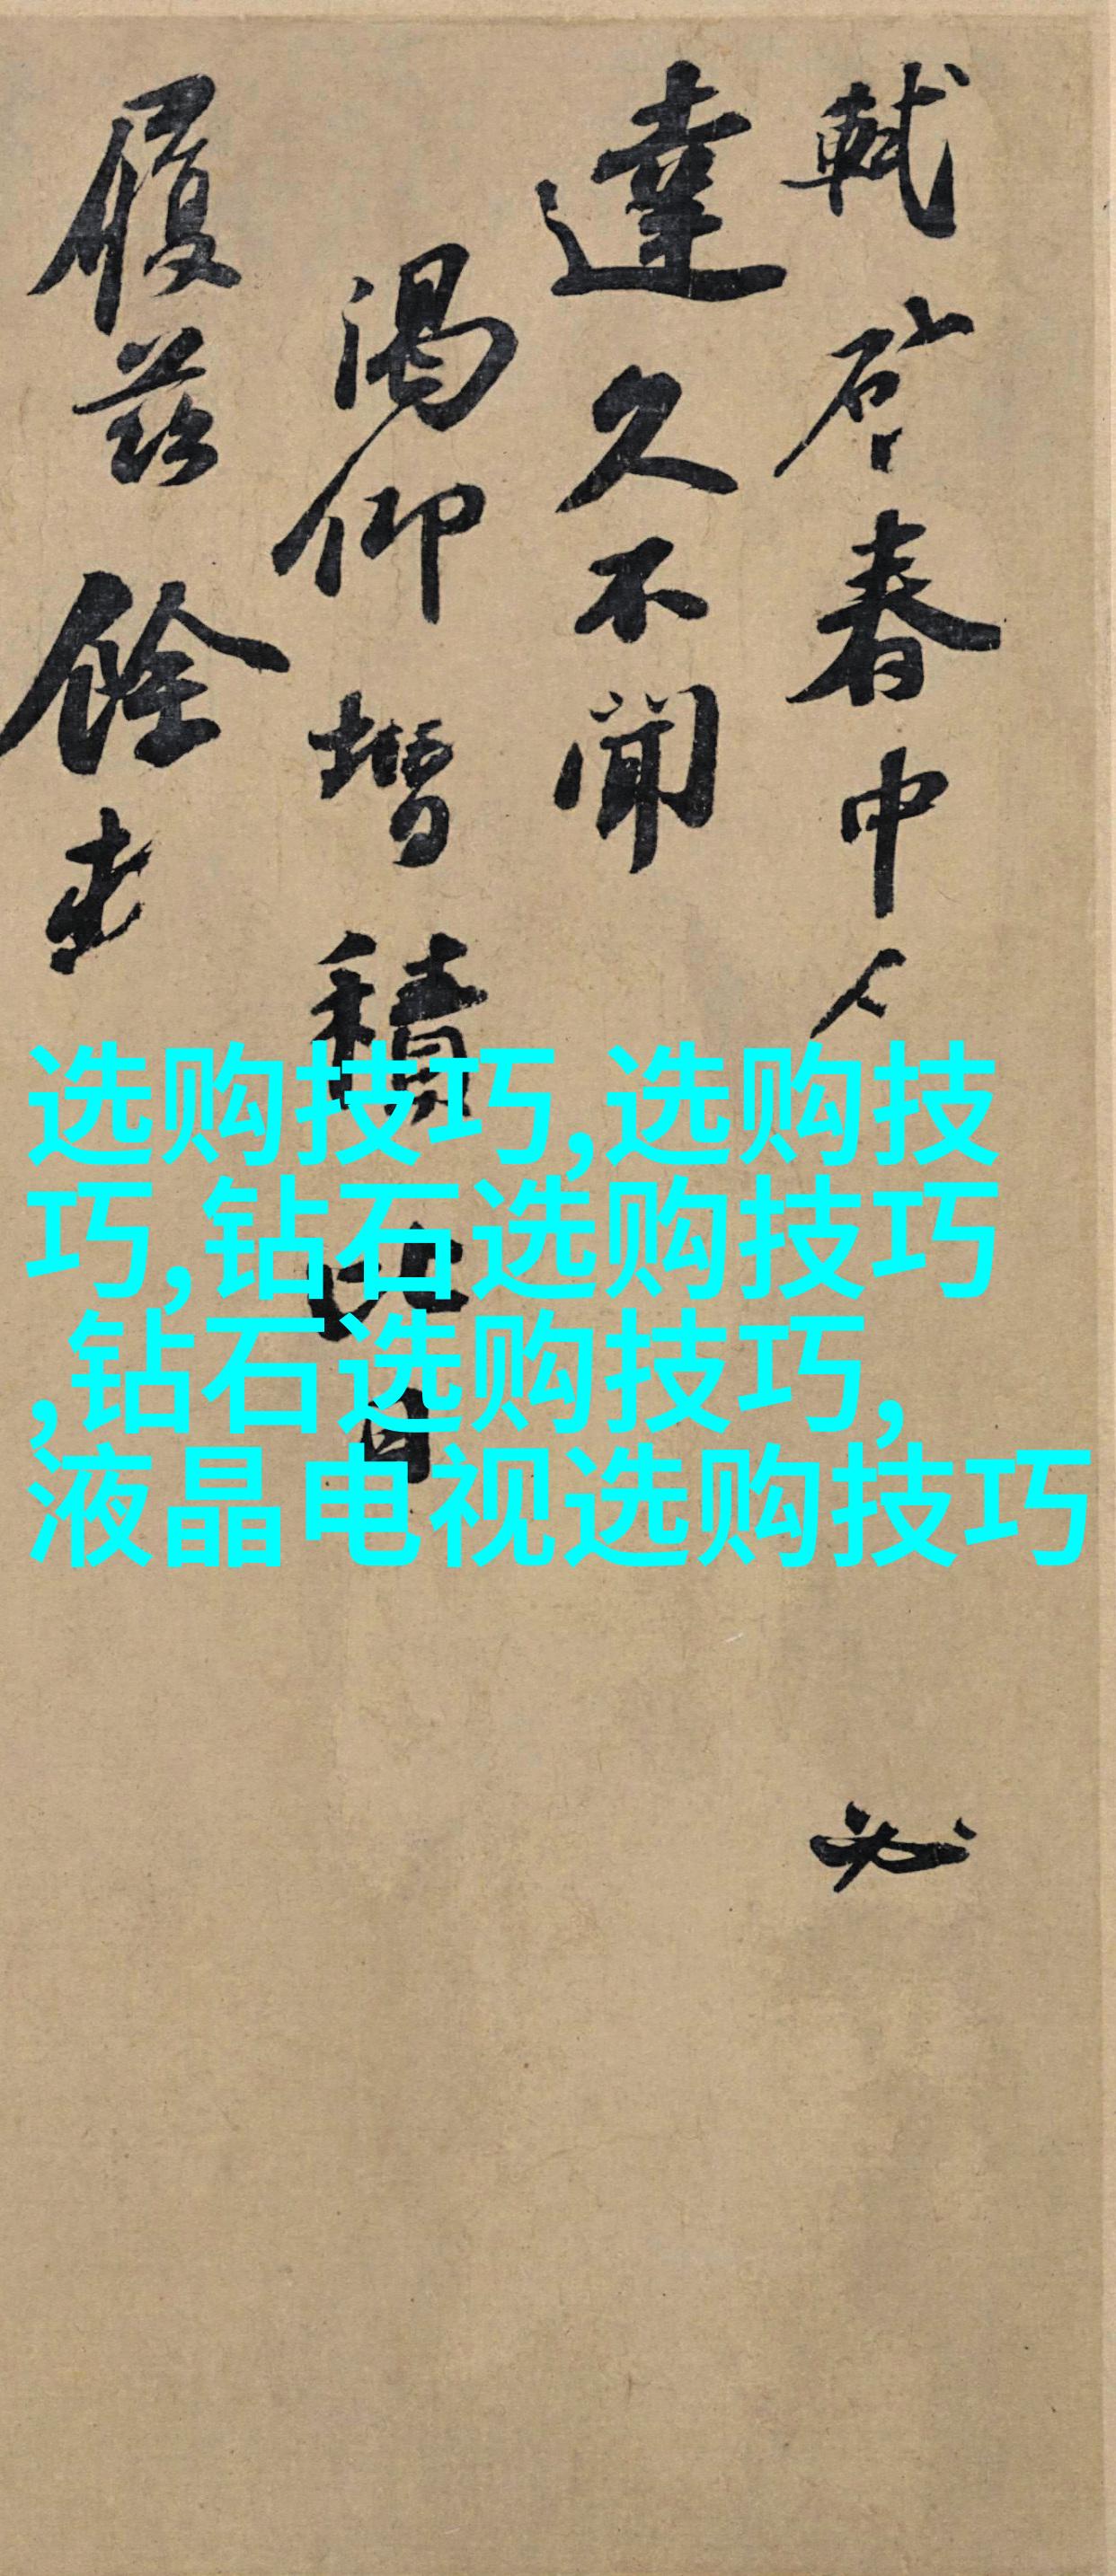 軾啓春中人必
達久不聞
渴仰增積比日
履茲餘
选购技巧,选购技
巧,钻石选购技巧
,钻石选购技巧,
液晶电视选购技巧